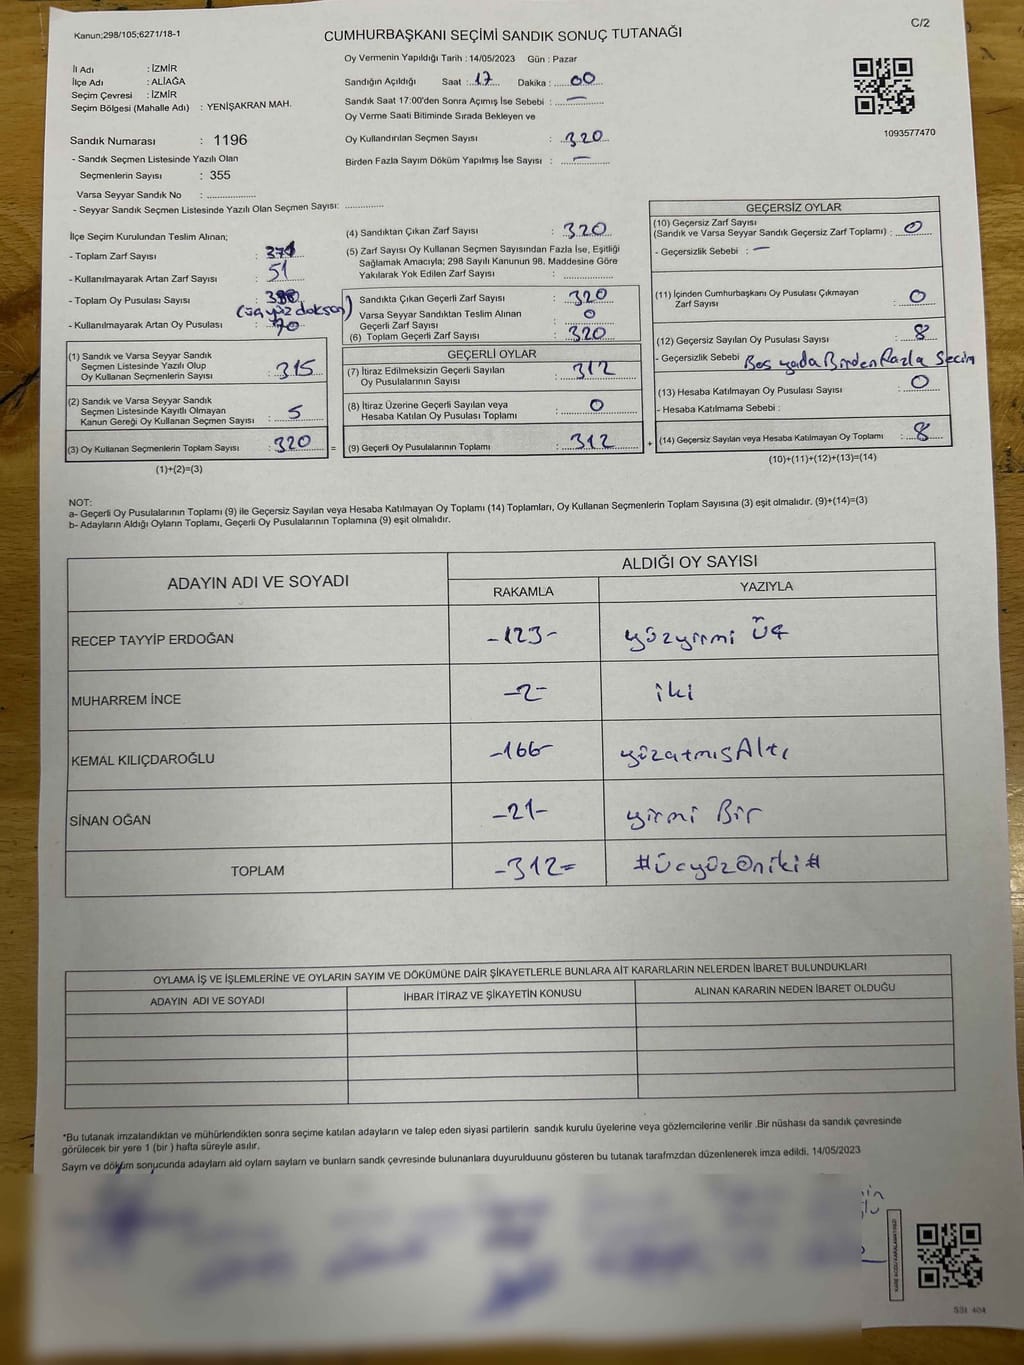 Kanun;298/105;6271/18-1
C/2
CUMHURBAŞKANI SEÇİMİ SANDIK SONUÇ TUTANAĞI
İl Adı : İZMİR
İlçe Adı : ALİAĞA
Seçim Çevresi : İZMİR
Seçim Bölgesi (Mahalle Adı) : YENİŞAKRAN MAH.
Sandık Numarası : 1196
- Sandık Seçmen Listesinde Yazılı Olan
Seçmenlerin Sayısı : 355
Varsa Seyyar Sandık No : ..............
- Seyyar Sandık Seçmen Listesinde Yazılı Olan Seçmen Sayısı: ..............
Oy Vermenin Yapıldığı Tarih : 14/05/2023 Gün : Pazar
Sandığın Açıldığı Saat : 17 Dakika : 00
Sandık Saat 17:00'den Sonra Açımış İse Sebebi : —
Oy Verme Saati Bitiminde Sırada Bekleyen ve
Oy Kullandırılan Seçmen Sayısı : 320
Birden Fazla Sayım Döküm Yapılmış İse Sayısı : —
1093577470
İlçe Seçim Kurulundan Teslim Alınan;
- Toplam Zarf Sayısı : 371
- Kullanılmayarak Artan Zarf Sayısı : 51
- Toplam Oy Pusulası Sayısı : 390
(üçyüz doksan)
- Kullanılmayarak Artan Oy Pusulası : 70
(1) Sandık ve Varsa Seyyar Sandık
Seçmen Listesinde Yazılı Olup
Oy Kullanan Seçmenlerin Sayısı : 315
(2) Sandık ve Varsa Seyyar Sandık
Seçmen Listesinde Kayıtlı Olmayan
Kanun Gereği Oy Kullanan Seçmen Sayısı : 5
(3) Oy Kullanan Seçmenlerin Toplam Sayısı : 320
(1)+(2)=(3)
(4) Sandıktan Çıkan Zarf Sayısı : 320
(5) Zarf Sayısı Oy Kullanan Seçmen Sayısından Fazla İse, Eşitliği
Sağlamak Amacıyla; 298 Sayılı Kanunun 98. Maddesine Göre
Yakılarak Yok Edilen Zarf Sayısı : ..............
Sandıkta Çıkan Geçerli Zarf Sayısı : 320
Varsa Seyyar Sandıktan Teslim Alınan
Geçerli Zarf Sayısı : 0
(6) Toplam Geçerli Zarf Sayısı : 320
GEÇERLİ OYLAR
(7) İtiraz Edilmeksizin Geçerli Sayılan
Oy Pusulalarının Sayısı : 312
(8) İtiraz Üzerine Geçerli Sayılan veya
Hesaba Katılan Oy Pusulası Toplamı : 0
= (9) Geçerli Oy Pusulalarının Toplamı : 312
GEÇERSİZ OYLAR
(10) Geçersiz Zarf Sayısı
(Sandık ve Varsa Seyyar Sandık Geçersiz Zarf Toplamı) : 0
- Geçersizlik Sebebi : —
(11) İçinden Cumhurbaşkanı Oy Pusulası Çıkmayan
Zarf Sayısı : 0
(12) Geçersiz Sayılan Oy Pusulası Sayısı : 8
- Geçersizlik Sebebi Boş yada Birden Fazla Seçim
(13) Hesaba Katılmayan Oy Pusulası Sayısı : 0
- Hesaba Katılmama Sebebi :
+ (14) Geçersiz Sayılan veya Hesaba Katılmayan Oy Toplamı : 8
(10)+(11)+(12)+(13)=(14)
NOT:
a- Geçerli Oy Pusulalarının Toplamı (9) ile Geçersiz Sayılan veya Hesaba Katılmayan Oy Toplamı (14) Toplamları, Oy Kullanan Seçmenlerin Toplam Sayısına (3) eşit olmalıdır. (9)+(14)=(3)
b- Adayların Aldığı Oyların Toplamı, Geçerli Oy Pusulalarının Toplamına (9) eşit olmalıdır.
ADAYIN ADI VE SOYADI ALDIĞI OY SAYISI
RAKAMLA YAZIYLA
RECEP TAYYİP ERDOĞAN -123- yüzyirmi üç
MUHARREM İNCE -2- iki
KEMAL KILIÇDAROĞLU -166- yüzatmışAltı
SİNAN OĞAN -21- yirmi Bir
TOPLAM -312= #üçyüzOniki#
OYLAMA İŞ VE İŞLEMLERİNE VE OYLARIN SAYIM VE DÖKÜMÜNE DAİR ŞİKAYETLERLE BUNLARA AİT KARARLARIN NELERDEN İBARET BULUNDUKLARI
ADAYIN ADI VE SOYADI İHBAR İTİRAZ VE ŞİKAYETİN KONUSU ALINAN KARARIN NEDEN İBARET OLDUĞU
*Bu tutanak imzalandıktan ve mühürlendikten sonra seçime katılan adayların ve talep eden siyasi partilerin sandık kurulu üyelerine veya gözlemcilerine verilir .Bir nüshası da sandık çevresinde
görülecek bir yere 1 (bir ) hafta süreyle asılır.
Sayım ve döküm sonucunda adayların ald oyların sayların ve bunların sandk çevresinde bulunanlara duyurulduunu gösteren bu tutanak tarafmzdan düzenlenerek imza edildi. 14/05/2023